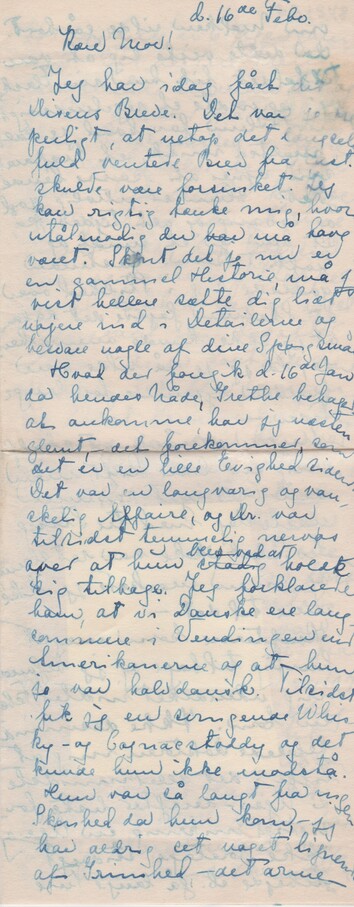 d. 16de Febr.
Kære Mor!
Jeg har idag fået
Breve. Det var
pinligt, at netop det
fuld ventede Brev fra
skulde være forsinket. Jeg
kan rigtig tænke mig, hvor
utålmodig du har må have
været. Skønt det jo nu er
en gammel Historie, må j
vist hellere sætte dig lidt
nøjere ind i Detaillerne og
besvare nogle af dine Spørgsmå
Hvad der foregik d. 16de Jan
da hendes Nåde, Grethe behaged
at ankomme, har jeg næsten
glemt, det forekommer, som
det er en hele Evighed siden.
Det var en langvarig og van-
skelig Affaire, og Dr. var
tilsidst temmelig nervøs
over at hun blev ved at holde
sig tilbage. Jeg forklarede
ham, at vi Danske ere lang
somme i Vendingen end
Amerikanerne og at hun
jo var halv dansk. Tilsidst
fik jeg en svingende Whis
ky- og Cognacstoddy og det
kunde hun ikke modstå.
Hun var så langt fra nogen
Skønhed da hun kom, - jeg
har aldrig set noget lignende
af Grimhed - det arme